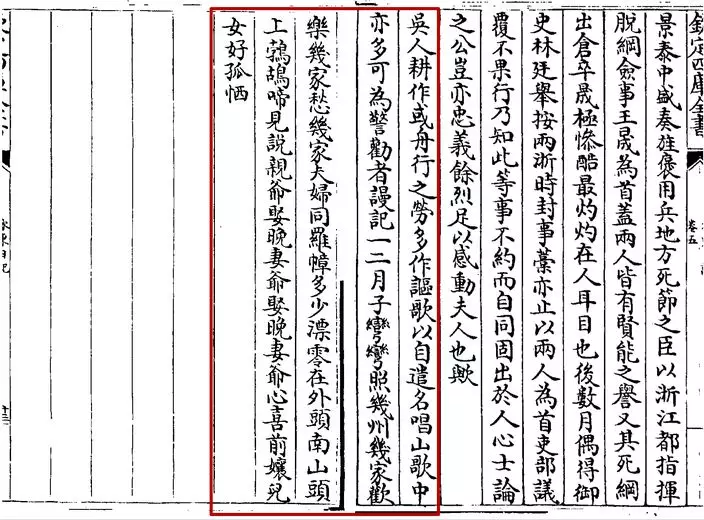 欽定四庫全書
卷五
景泰中盛奏旌褒用兵地方死節之臣以浙江都指揮
脫綱僉事王晟為首蓋兩人皆有賢能之譽又其死綱
出倉卒晟極慘酷最灼灼在人耳目也後數月偶得御
史林廷舉按兩浙時封事藁亦止以兩人為首吏部議
覆不果行乃知此等事不約而自同固出於人心士論
之公豈亦忠義餘烈足以感動夫人也歟
吳人耕作或舟行之勞多作謳歌以自遣名唱山歌中
亦多可為警勸者謾記一二月子彎彎照幾州幾家歡
樂幾家愁幾家夫婦同羅幛多少漂零在外頭南山頭
上鵓鴣啼見說親爺娶晚妻爺娶晚妻爺心喜前孃兒
女好孤恓
水東日記